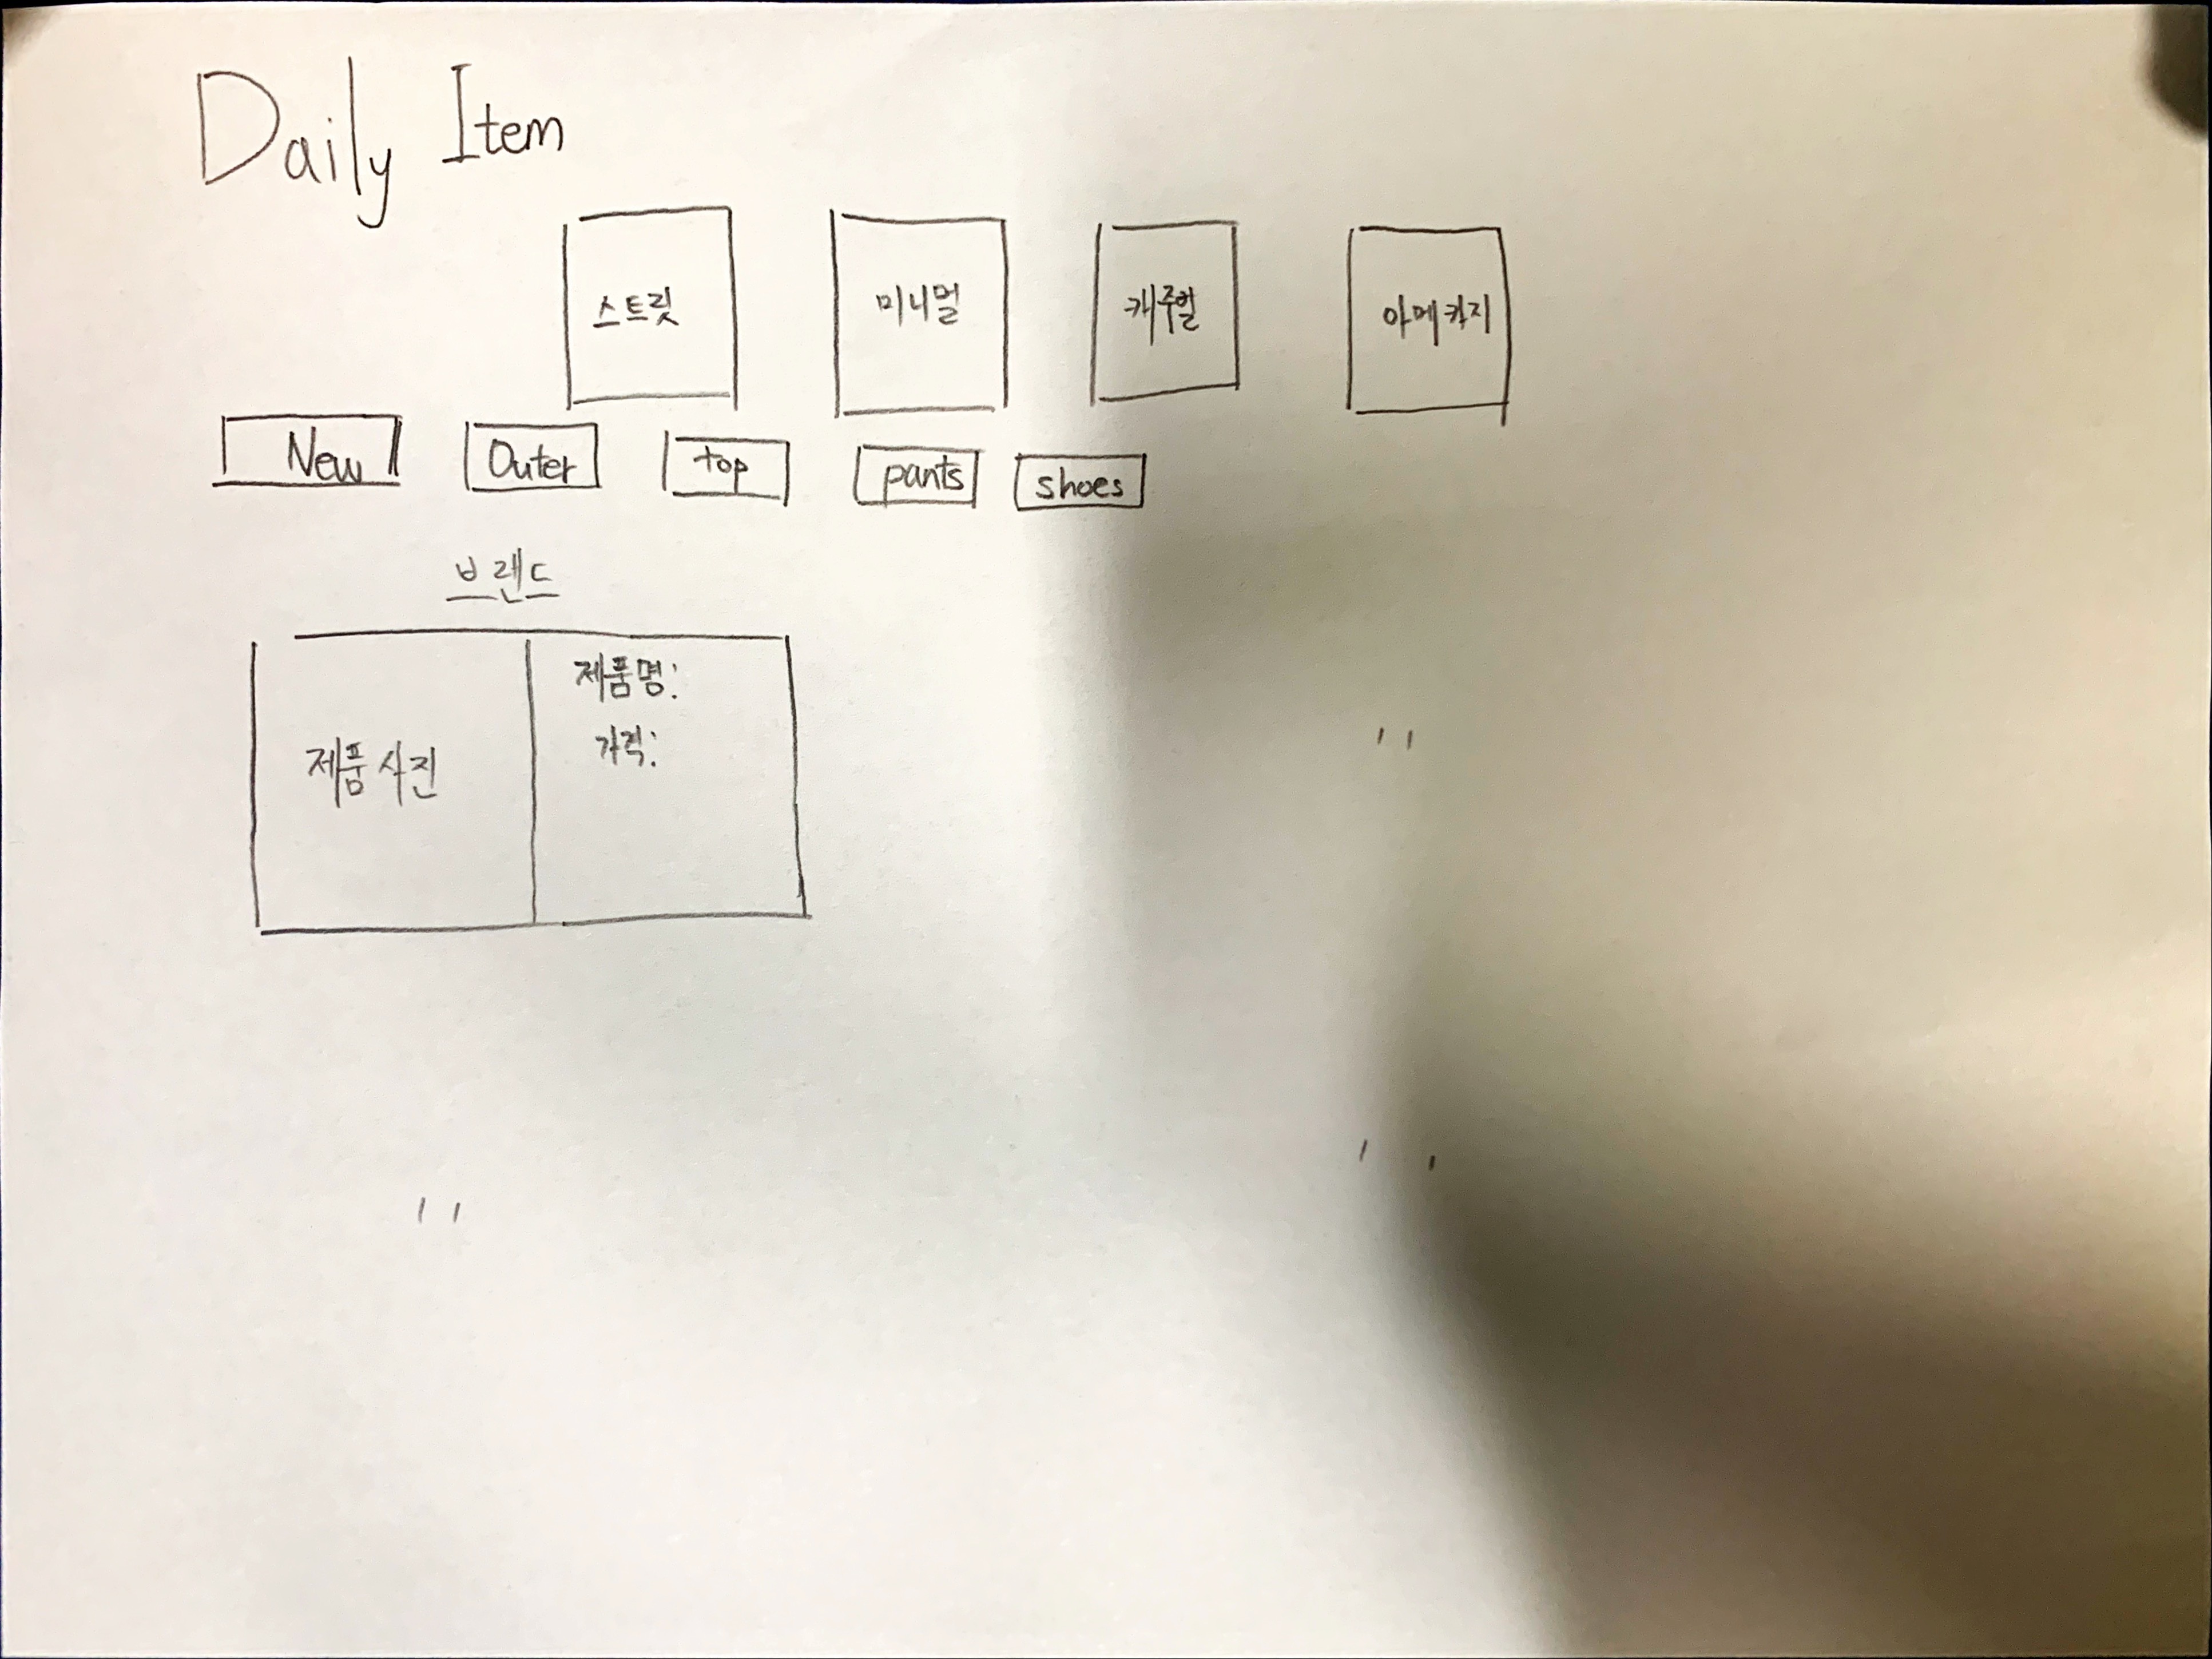 Daily Item
스트릿 미니멀 캐주얼 아메카지
New Outer top pants shoes
브랜드
제품명:
가격:
제품 사진
" "
" "